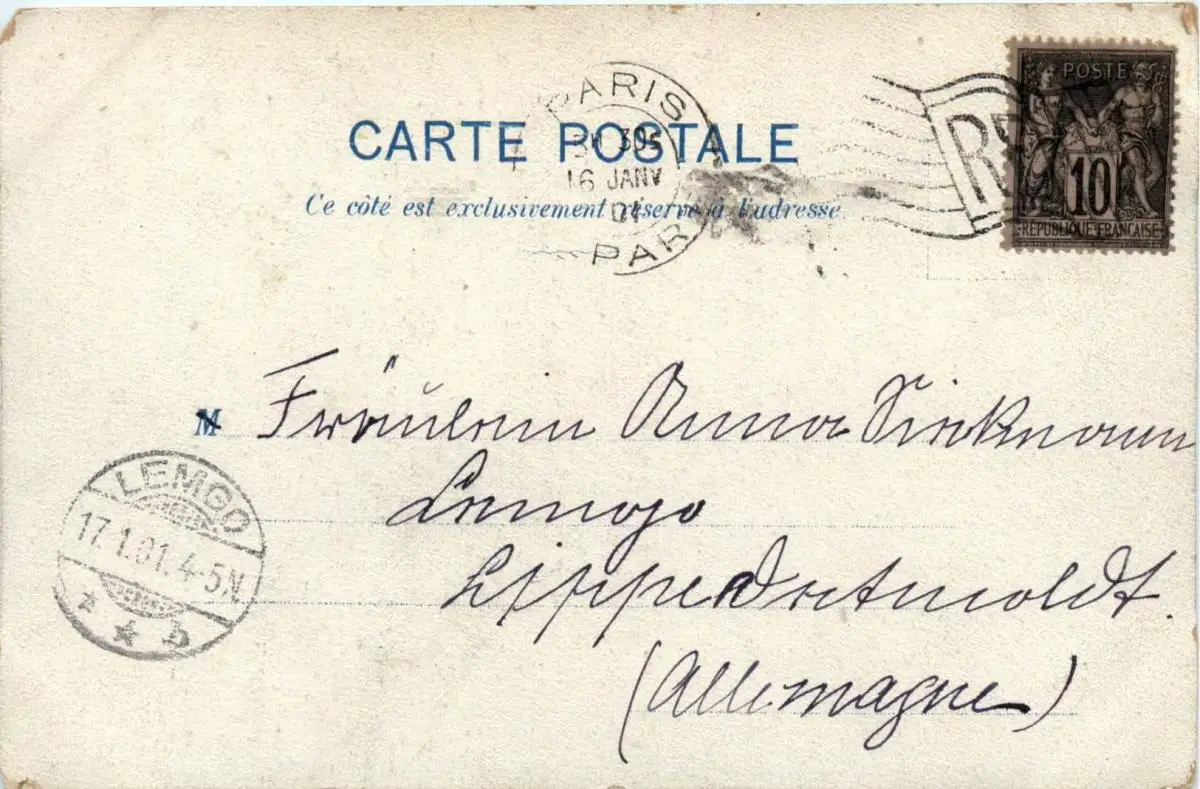 POSTE
10
RÉPUBLIQUE FRANÇAISE
PARIS
3H 30S
16 JANV
01
PAR
RF
CARTE POSTALE
Ce côté est exclusivement réservé à l'adresse
M Fräulein Anna Sirkmann
Lemgo
Lippe Detmoldt.
(Allemagne)
LEMGO
17.1.01. 4-5N.
* b